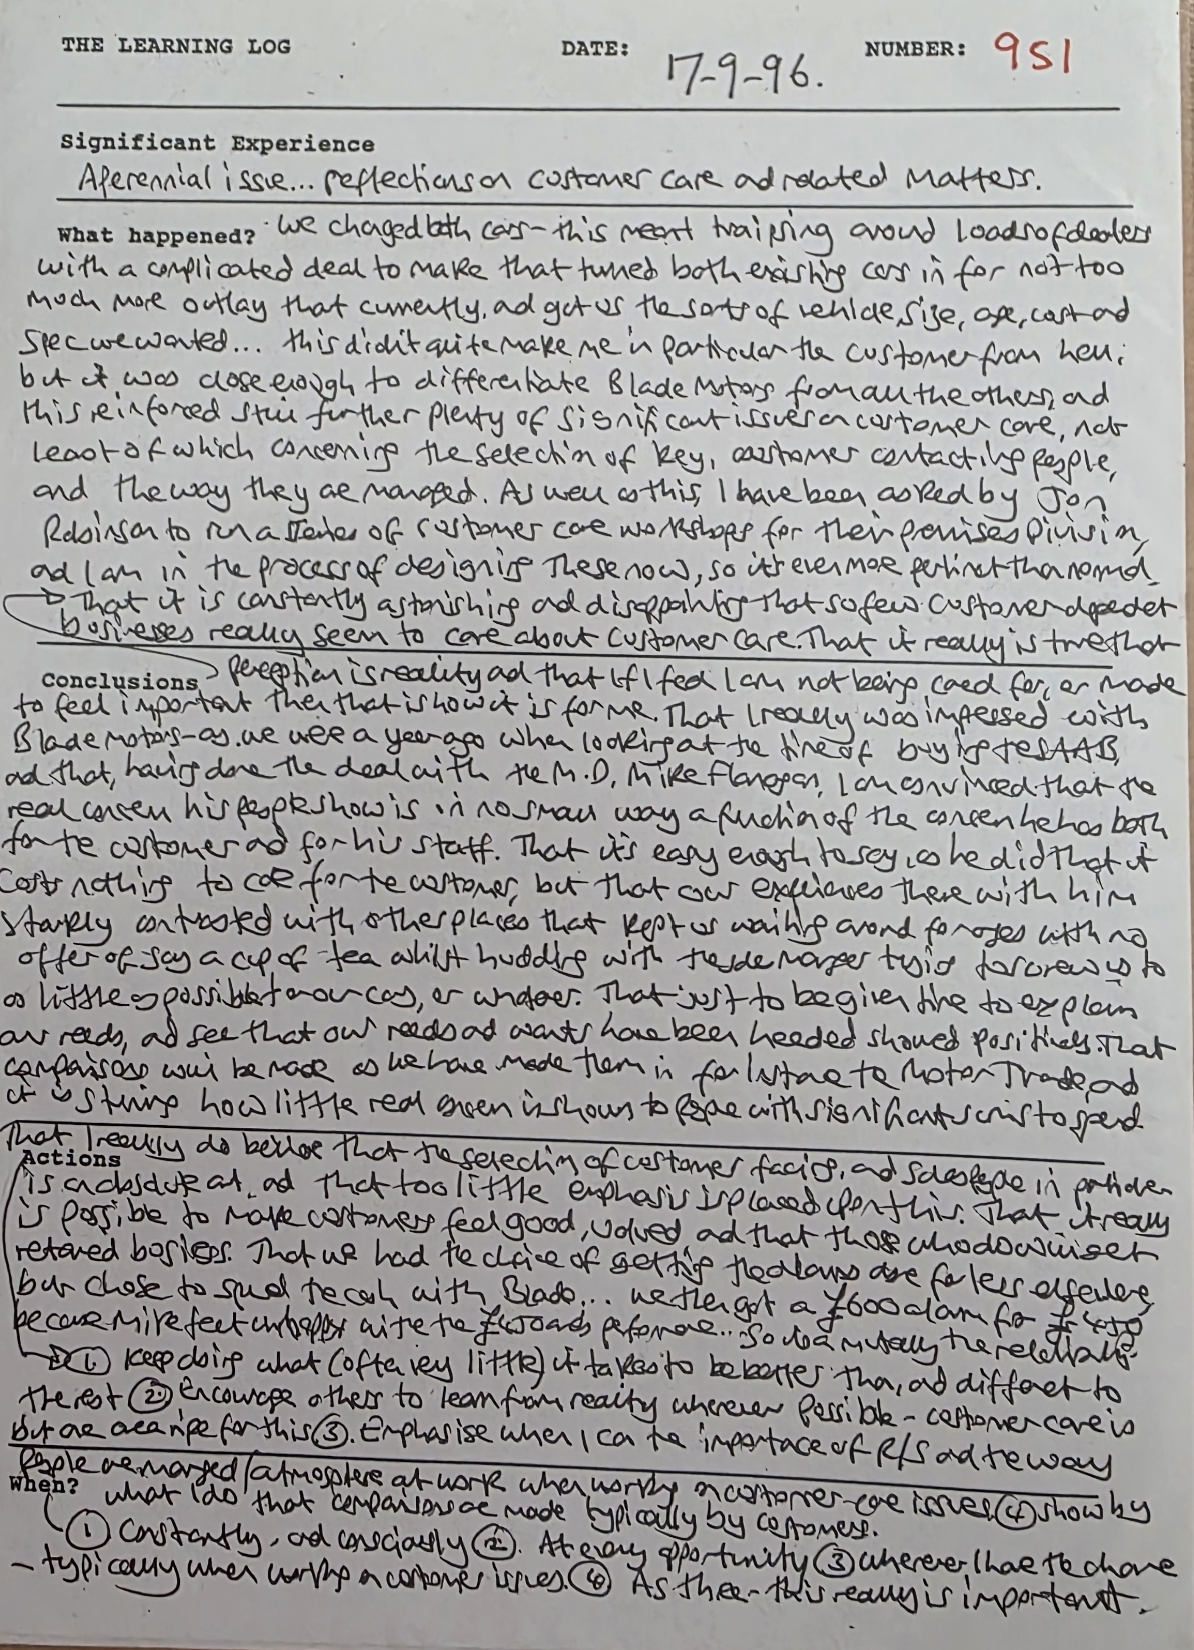 THE LEARNING LOG DATE: 17-9-96. NUMBER: 951
Significant Experience
A perennial issue... reflections on customer care ad related matters.
What happened? We chaged both cars - this meant traipsing around loads of dealers
with a complicated deal to make that turned both existing cars in for not too
much more outlay that currently, ad got us the sorts of vehicle, size, age, cost ad
spec we wanted... this didn't quite make me in particular the customer from hell;
but it was close enough to differentiate Blade Motors from all the others, ad
this reinforced still further plenty of significant issues on customer care, not
least of which concerning the selection of key, customer contacting people,
and the way they are managed. As well as this, I have been asked by Jon
Robinson to run a series of customer care workshops for their premises Division,
ad I am in the process of designing these now, so it's even more pertinent than normal.
→ That it is constantly astonishing ad disappointing that so few customer dependent
businesses really seem to care about customer care. That it really is true that
Conclusions perception is reality ad that if I feel I am not being cared for, or made
to feel important then that is how it is for me. That I really was impressed with
Blade Motors - as we were a year ago when looking at the time of buying the SAAB,
ad that, having done the deal with the M.D, Mike Flanagan, I am convinced that the
real concern his people show is in no small way a function of the concern he has both
for the customer ad for his staff. That it's easy enough to say, as he did that it
costs nothing to care for the customer, but that our experiences there with him
starkly contrasted with other places that kept us waiting around for ages with no
offer of say a cup of tea whilst huddling with the sales manager trying to screw us to
as little as possible for our cars, or whatever. That just to be given time to explain
our needs, ad see that our needs ad wants have been heeded showed positively. That
comparisons will be made as we have made them in for instance the Motor Trade, ad
it is striking how little real concern is shown to people with significant sums to spend.
That I really do believe that the selection of customer facing, and sales people in particular
Actions
is an absolute art, ad that too little emphasis is placed upon this. That it really
is possible to make customers feel good, valued ad that those who do will get
retained business. That we had the choice of getting the alarms done for less elsewhere,
but chose to spend the cash with Blade... we then got a £600 alarm for £450
because Mike felt unhappy with the £450 performance.. So
→ ① Keep doing what (often very little) it takes to be better than, ad different to
the rest ② Encourage others to learn from reality wherever possible - customer care is
but one area ripe for this ③. Emphasise when I can the importance of R/S ad the way
people are managed/atmosphere at work when working on customer-care issues. ④ show by
When? what I do that comparisons are made typically by customers.
① Constantly, ad consciously ②. At every opportunity ③ wherever I have the chance
- typically when working on customer issues. ④ As three - this really is important.